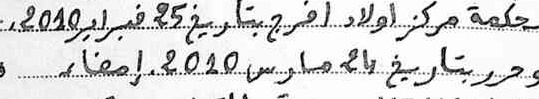 حكمة مركز اولاد افرج بتاريخ 25 فبراير 2010.
وحرر بتاريخ 24 مارس 2010. إمضاء